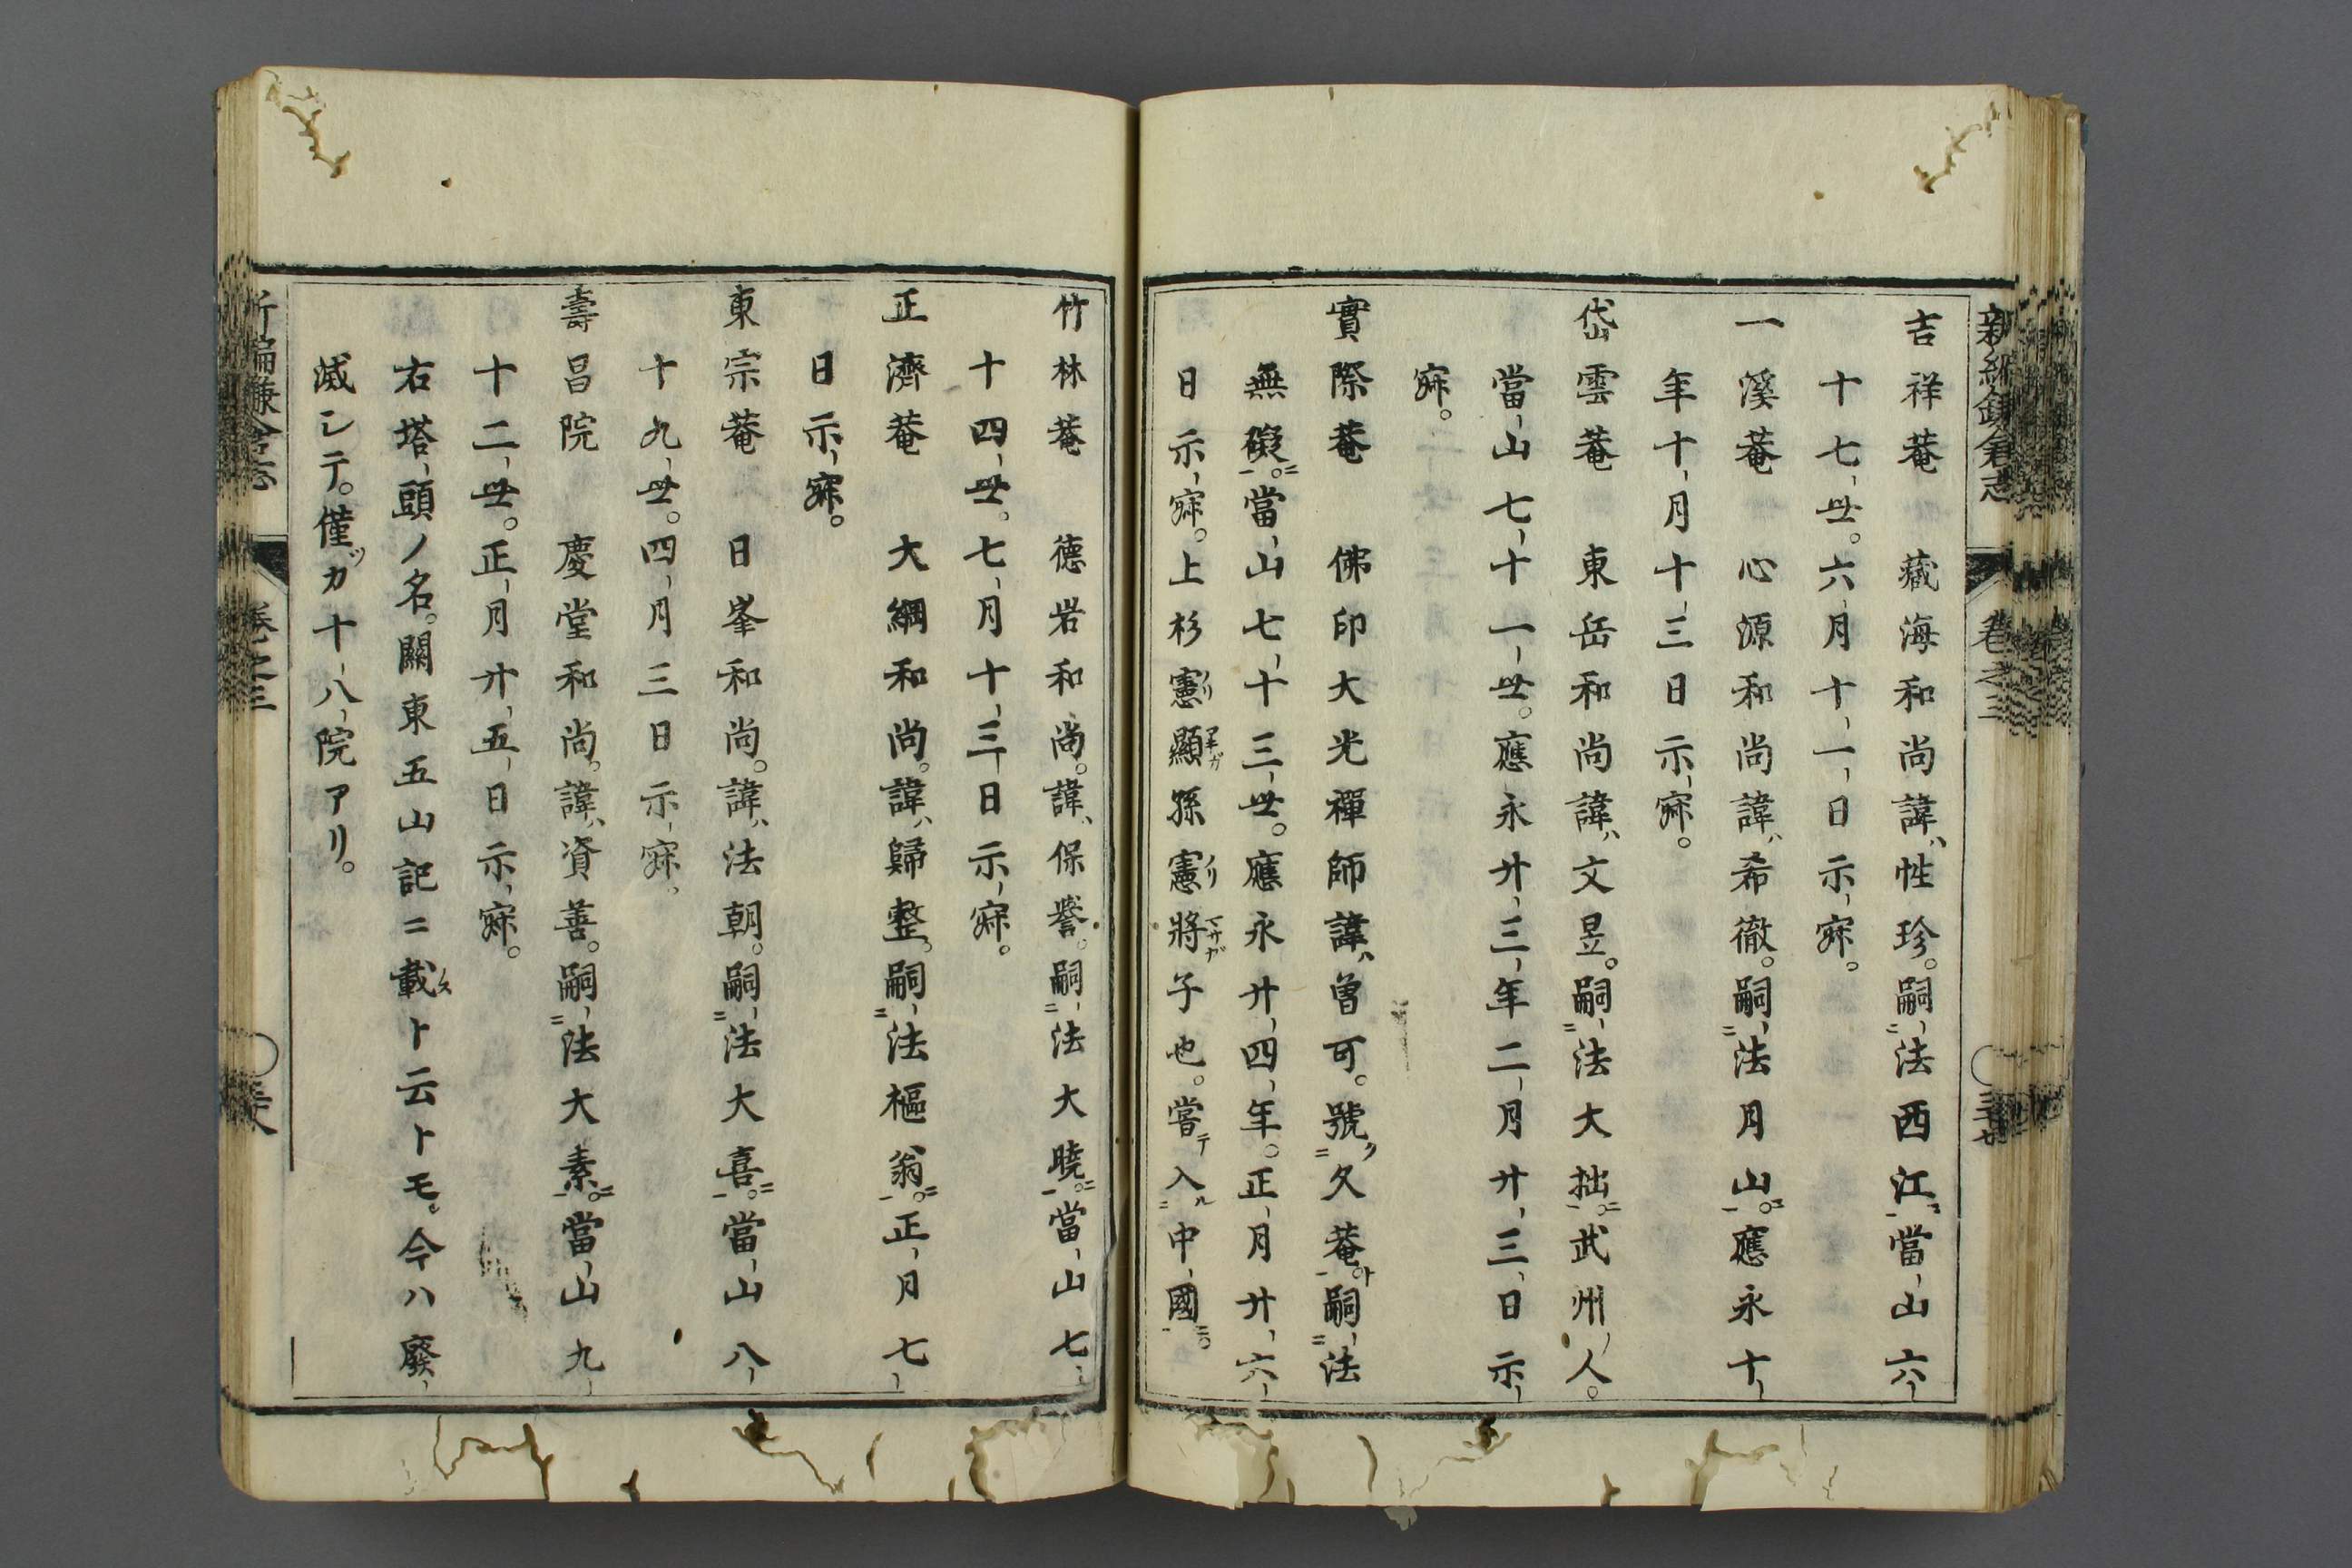 新編鎌倉志 卷之三 三十七
吉祥菴　藏海和尚諱ハ性珍。嗣法西江ニ當山六
十七世。六月十一日示寂。
一溪菴　心源和尚諱ハ希徹。嗣法月山ニ。應永十
年十月十三日示寂。
岱雲菴　東岳和尚諱ハ文昱。嗣法大拙ニ。武州ノ人。
當山七十一世。應永廿三年二月廿三日示
寂。
實際菴　佛印大光禪師諱ハ曽可。號久菴ト。嗣法
無礙ニ。當山七十三世。應永廿四年。正月廿六
日示寂。上杉憲顯孫憲將子也。嘗テ入ル中國ニ。
竹林菴　德岩和尚。諱ハ保譽。嗣法大曉ニ。當山七
十四世。七月十三日示寂。
正濟菴　大綱和尚。諱ハ歸整。嗣法樞翁ニ。正月七
日示寂。
東宗菴　日峯和尚。諱ハ法朝。嗣法大喜ニ。當山八
十九世。四月三日示寂。
壽昌院　慶堂和尚。諱ハ資善。嗣法大素ニ。當山九
十二世。正月廿五日示寂。
右塔頭ノ名。關東五山記ニ載スト云トモ。今ハ廢
滅シテ。僅ツカ十八院アリ。
新編鎌倉志 卷之三